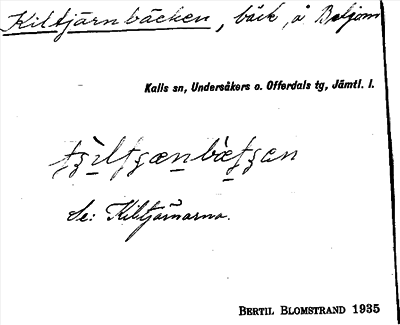 Kiltjärnbäcken, bäck, å Baljom
Kalls sn, Undersåkers o. Offerdals tg, Jämtl. l.
Se: Kiltjärnarna.
BERTIL BLOMSTRAND 1935